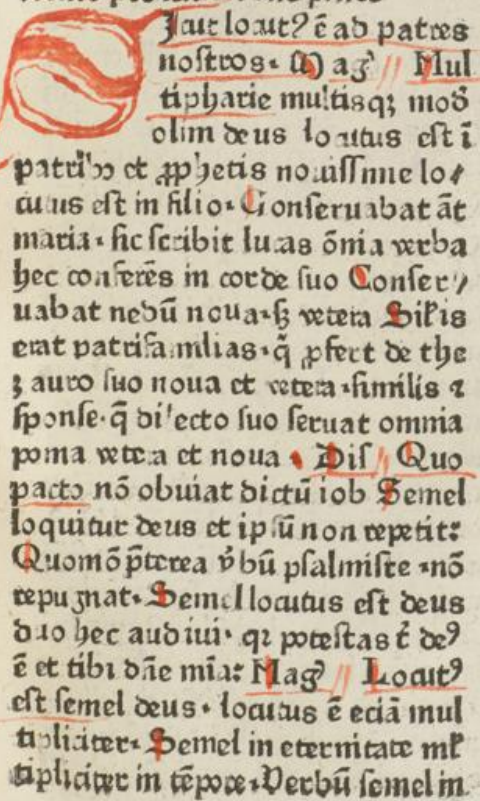 Sicut locutꝰ ē ad patres
nostros. Magꝰ Mul
tipharie multisqꝫ modꝭ
olim deus locutus est ī
patribꝫ et ꝓphetis nouissime lo⸗
cutus est in filio. Conseruabat āt
maria. sic scribit lucas ōnia verba
hec conferēs in corde suo Conser⸗
uabat nedū noua. sꝫ vetera Silis
erat patrifamilias. q̄ ꝓfert de the
ꝫauro suo noua et vetera. similis ⁊
sponse. q̄ dilecto suo seruat omnia
poma vetera et noua. Dis Quo
pacto nō obuiat dictū iob Semel
loquitur deus et ipsū non repetit:
Quomō p̄terea v̓bū psalmiste. nō
repugnat. Semel locutus est deus
duo hec audiui. qꝛ potestas t̄ deꝰ
ē et tibi dn̄e mīa: Magꝰ Locutꝰ
est semel deus. locutus ē eciā mul
tipliciter. Semel in eternitate ml̓
tipliciter in tēpore. Verbū semel in